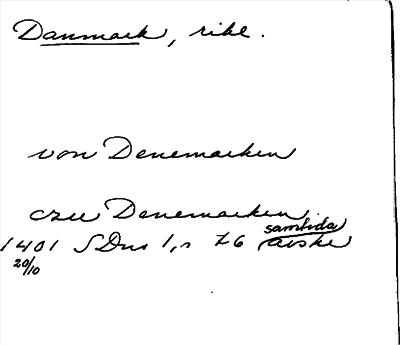 Danmark, rike.
von Denemarken
czu Denemarken
samtida
1401 SDns 1, s 76 avskr
20/10